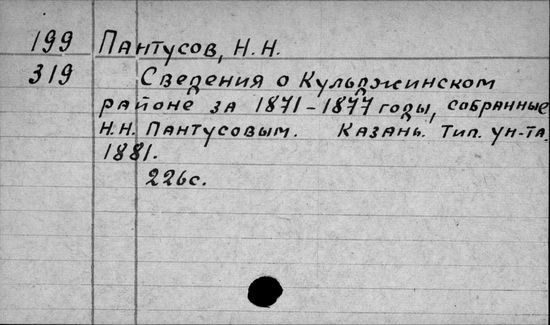 199 Пантусов, Н. Н.
319 Сведения о Кульджинском
районе за 1871-1877 годы, собранные
Н.Н. Пантусовым. Казань. Тип. ун-та.
1881.
226с.